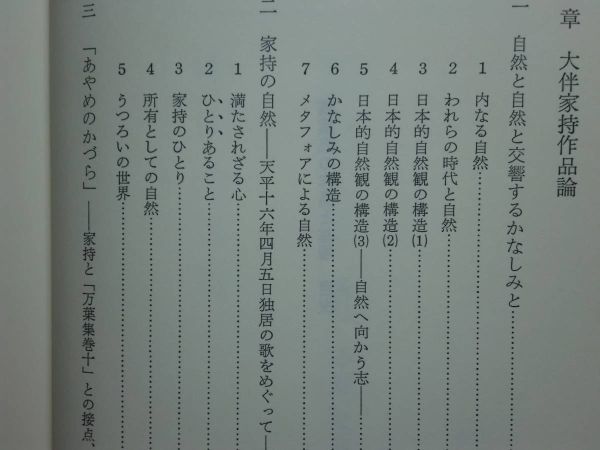 章　大伴家持作品論
一　自然と自然と交響するかなしみと…………
1　内なる自然…………
2　われらの時代と自然…………
3　日本的自然観の構造(1)…………
4　日本的自然観の構造(2)…………
5　日本的自然観の構造(3)――自然へ向かう志――
6　かなしみの構造…………
7　メタフォアによる自然…………
二　家持の自然――天平十六年四月五日独居の歌をめぐって――
1　満たされざる心…………
2　ひとりあること…………
3　家持のひとり…………
4　所有としての自然…………
5　うつろいの世界…………
三　「あやめのかづら」――家持と「万葉集巻十」との接点、